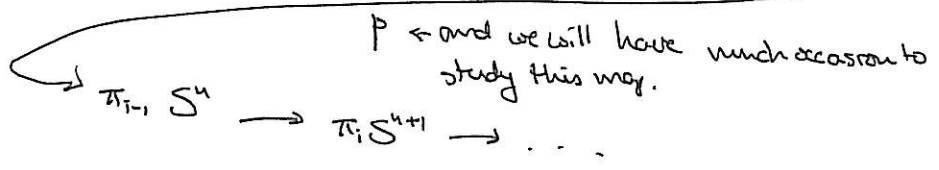 P ← and we will have much occasion to
study this map.
π_{i-1} S^n ⟶ π_i S^{n+1} ⟶ . . .